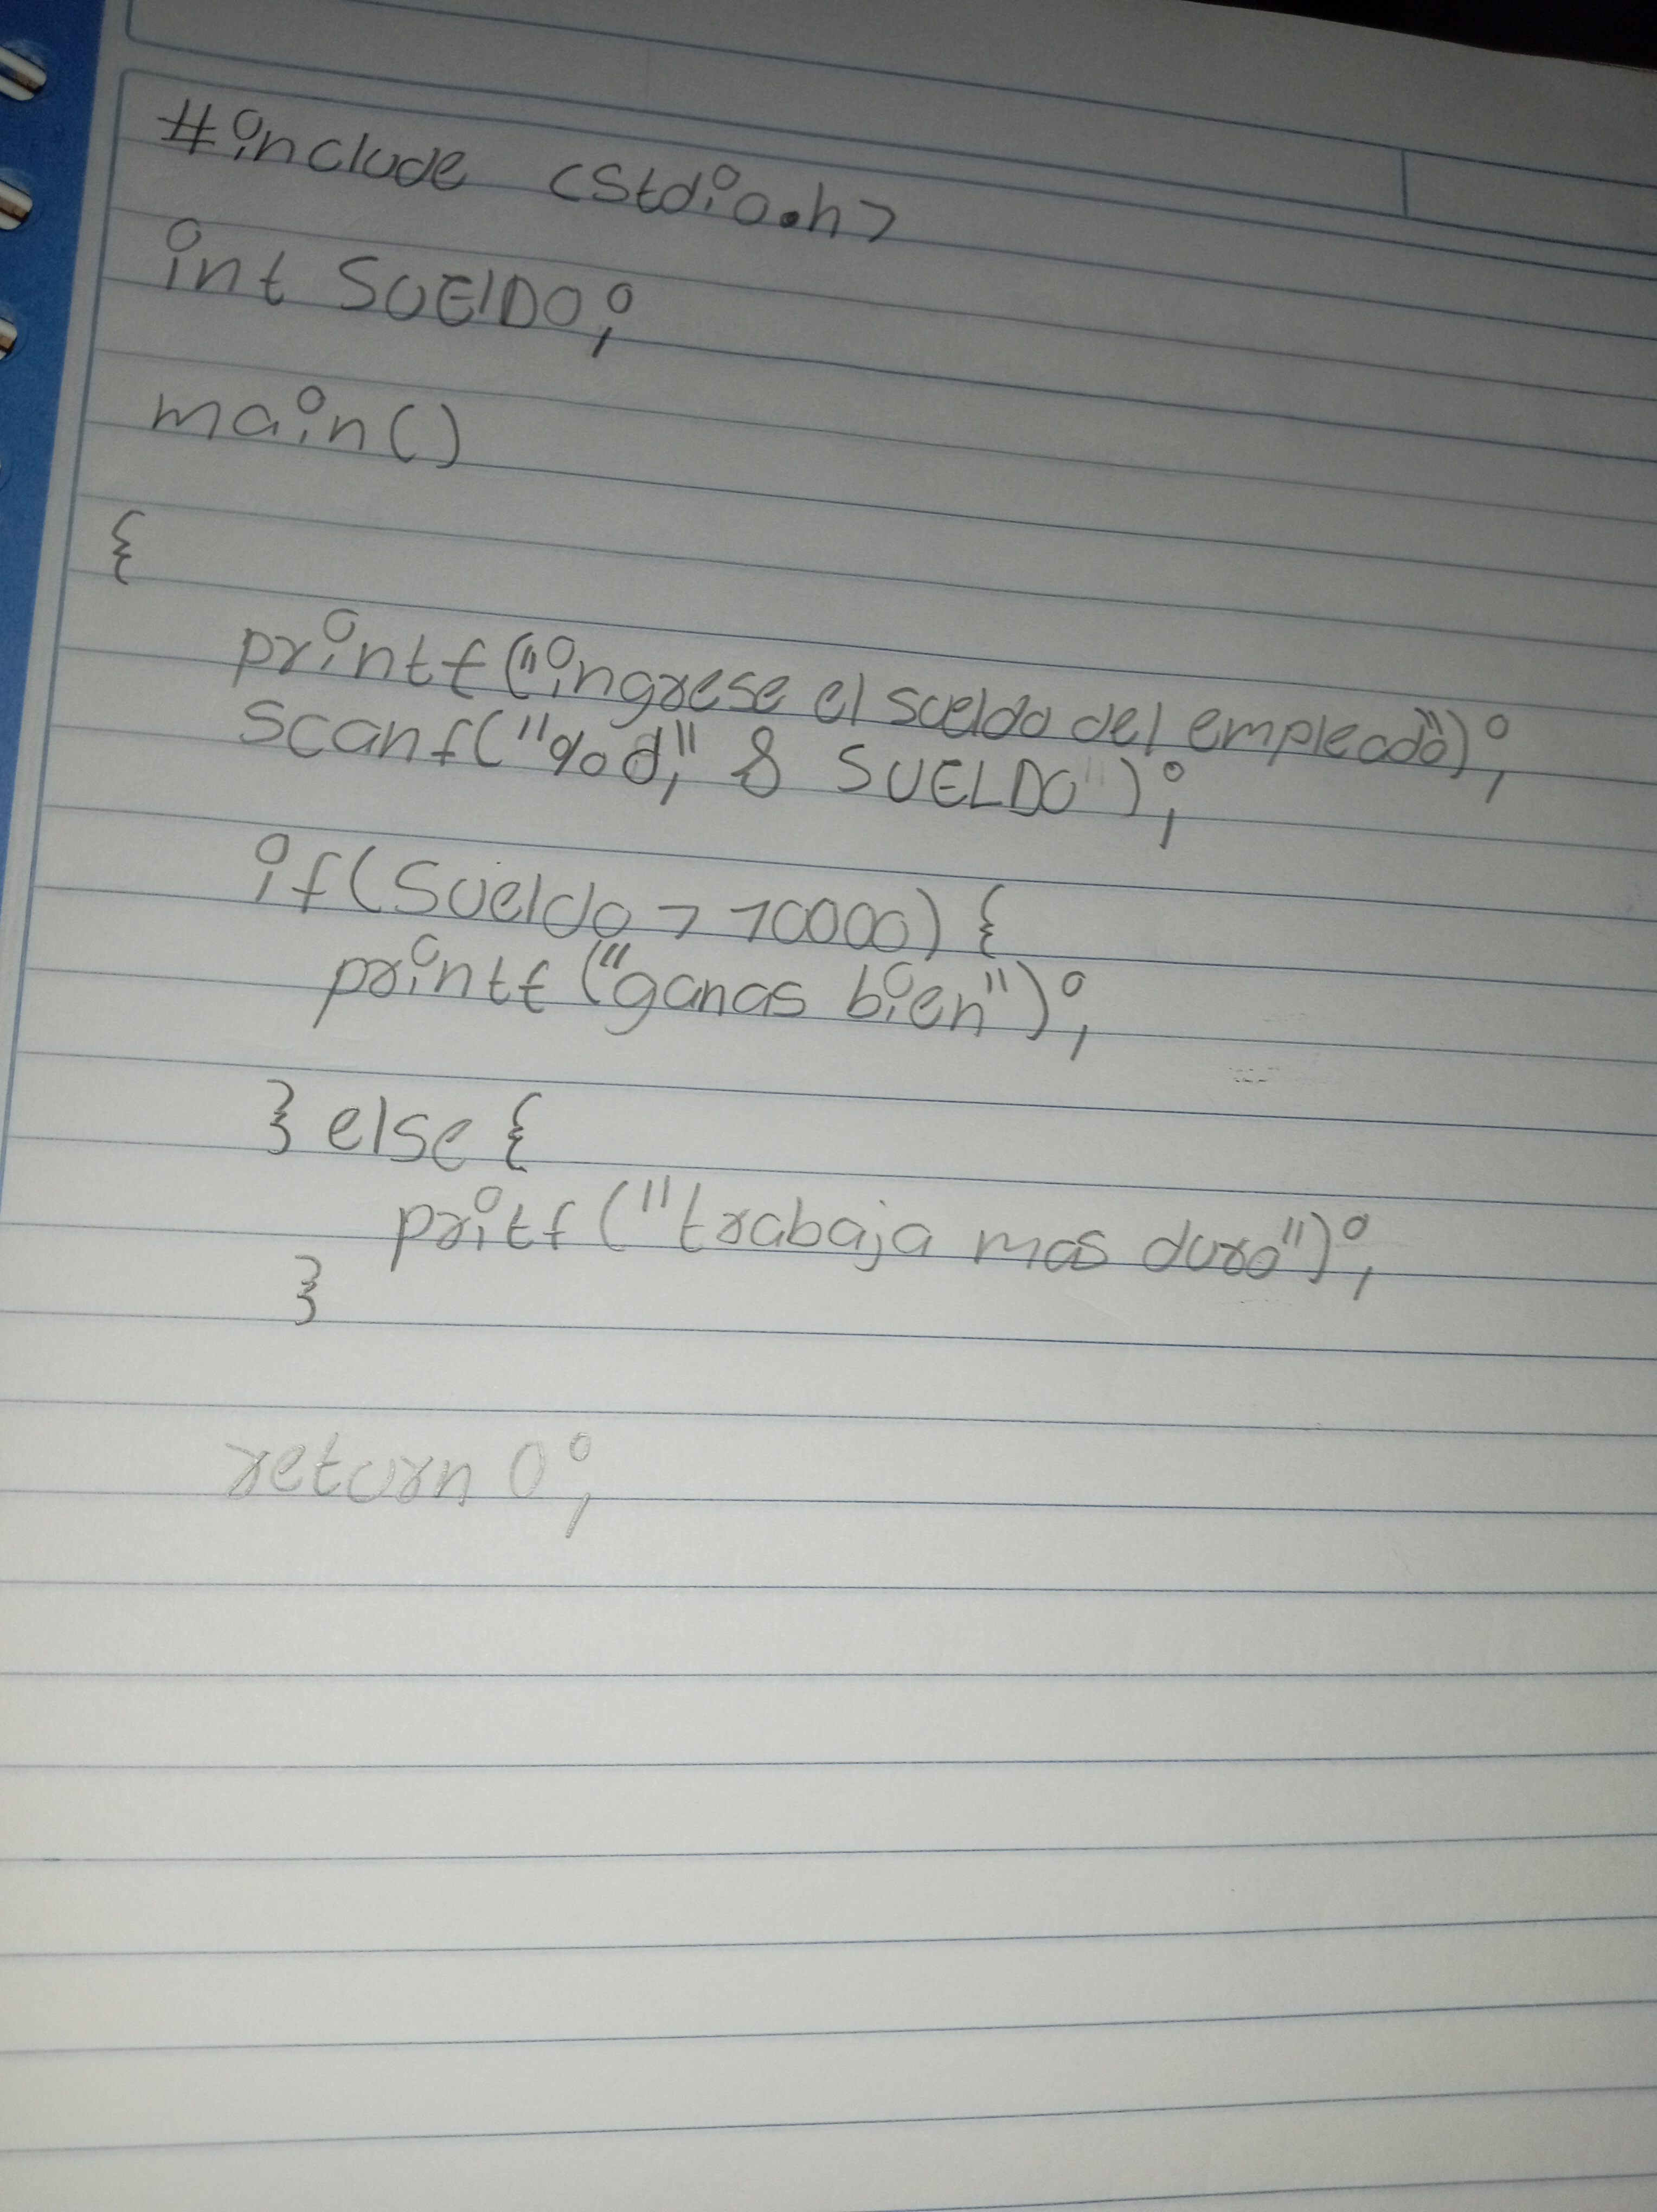 #include <stdio.h>
int SUElDO;
main()
{
printf("ingrese el sueldo del empleado");
scanf("%d," & SUELDO");
if(Sueldo > 10000) {
printf ("ganas bien");
} else {
pritf ("trabaja mas duro");
}
return 0;